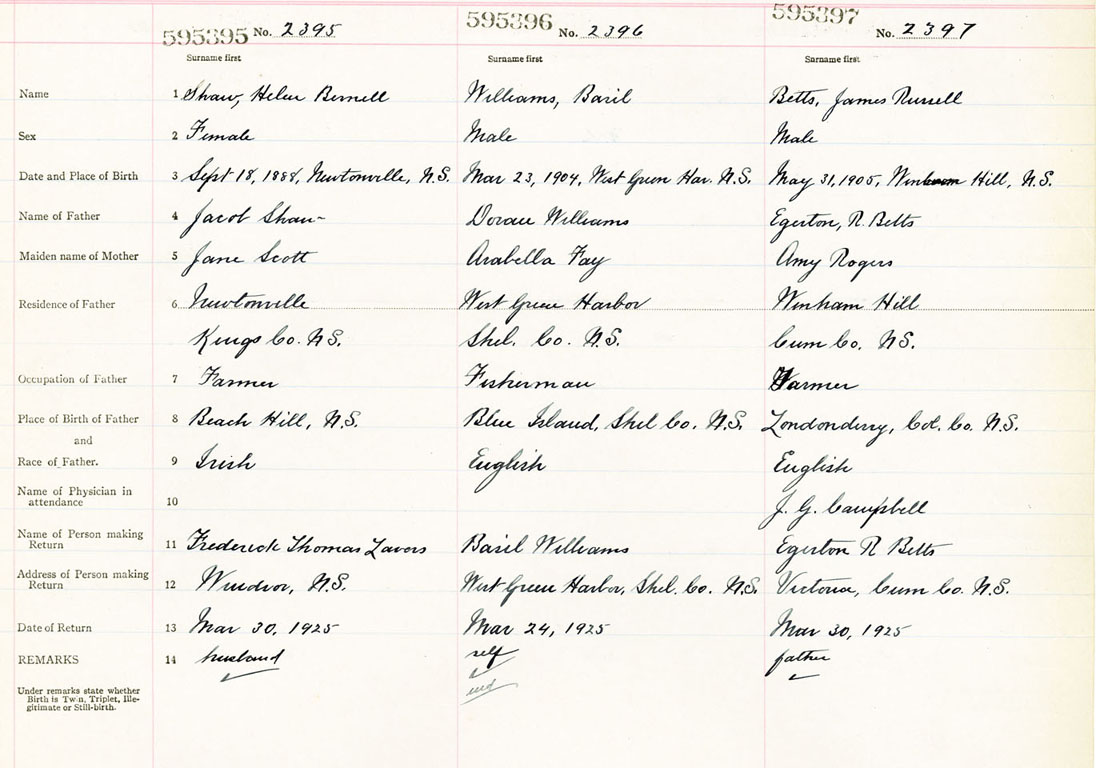 595395 No. 2395 595396 No. 2396 595397 No. 2397
Surname first Surname first Surname first
Name 1 Shaw, Helen Bernell Williams, Basil Betts, James Russell
Sex 2 Female Male Male
Date and Place of Birth 3 Sept 18, 1888, Newtonville, N.S. Mar 23, 1904, West Green Har. N.S. May 31, 1905, Hill, N.S.
Name of Father 4 Jacob Shaw Williams Egerton, R. Betts
Maiden name of Mother 5 Jane Scott Arabella Fay Amy Rogers
Residence of Father 6 Newtonville West Green Harbor Winham Hill
Kings Co. N.S. Shel. Co. N.S. Cum Co. N.S.
Occupation of Father 7 Farmer Fisherman Farmer
Place of Birth of Father 8 Beach Hill, N.S. Blue Island, Shel Co. N.S. Londonderry, Col. Co. N.S.
and
Race of Father. 9 Irish English English
Name of Physician in
attendance 10 J. G. Campbell
Name of Person making
Return 11 Frederick Thomas Lavors Basil Williams Egerton R Betts
Address of Person making
Return 12 Windsor, N.S. West Green Harbor, Shel. Co. N.S. Victoria, Cum Co. N.S.
Date of Return 13 Mar 30, 1925 Mar 24, 1925 Mar 30, 1925
REMARKS 14 husband self father
Under remarks state whether
Birth is Twin, Triplet, Ille-
gitimate or Still-birth.